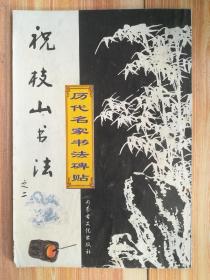 祝枝山书法
之二
历代名家书法碑贴
内蒙古文化出版社